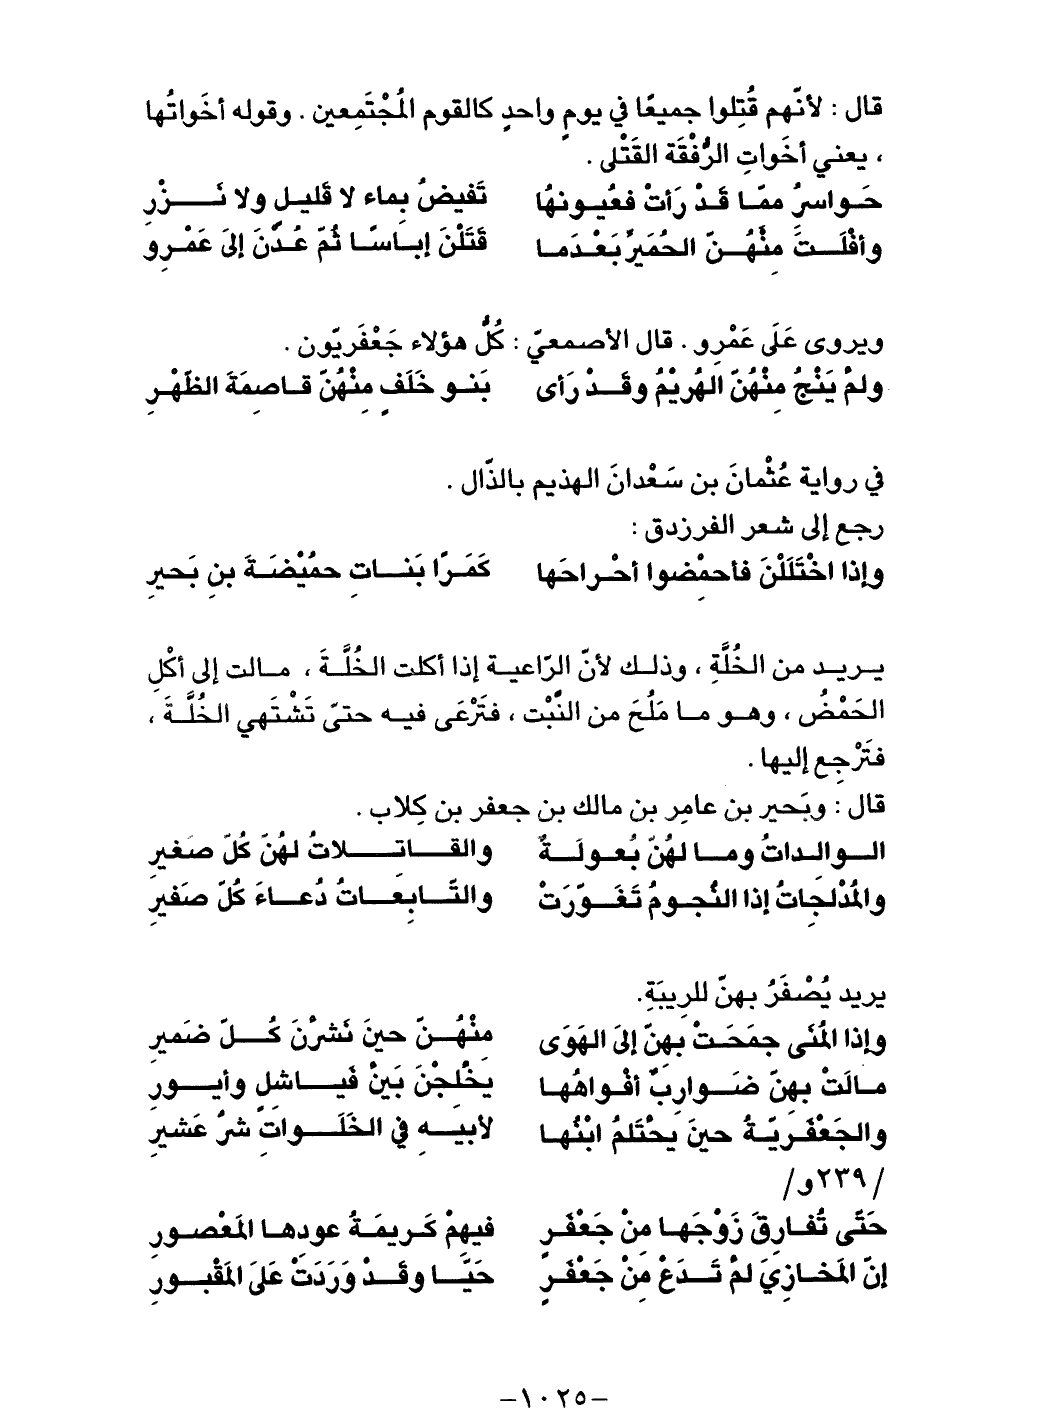 قال : لأنّهم قُتِلوا جميعًا في يومٍ واحدٍ كالقوم المُجْتَمِعين . وقوله أخَواتُها
، يعني أخَواتِ الرُّفْقَة القَتْلى .
حَواسرُ ممّا قَدْ رَأتْ فعُيونهُا تَفيضُ بِماء لا قَليلٍ ولا نَزْرِ
وأفْلَتَ مِنْهُنّ الحُمَيرُ بَعْدَما قَتَلْنَ إياسًا ثُمّ عُدْنَ إلىَ عَمْرِو
ويروى عَلَى عَمْرِو . قال الأصمعيّ : كُلُّ هؤلاء جَعْفَريّون .
ولمْ يَنْجُ مِنْهُنّ الهُريْمُ وقَدْ رَأى بَنو خَلَفٍ مِنْهُنّ قاصِمَةَ الظّهْرِ
في رواية عُثْمانَ بن سَعْدانَ الهذيم بالذّال .
رجع إلى شعر الفرزدق :
وإذا اخْتَلَلْنَ فأحمِضوا أحْراحَها كَمَرًا بَناتِ حمُيْضَةَ بنِ بَحيرِ
يريد من الخُلَّةِ ، وذلك لأنّ الرّاعية إذا أكلت الخُلَّةَ ، مالت إلى أكْلِ
الحَمْضُ ، وهو ما مَلُحَ من النَّبْت ، فتَرْعَى فيه حتىّ تَشْتَهي الخُلَّةَ ،
فتَرْجِع إليها .
قال : وبَحير بن عامِر بن مالك بن جعفر بن كِلاب .
الوالداتُ وما لهُنّ بُعولَةٌ والقاتِلاتُ لهُنّ كُلّ صَغيرِ
والمُدْلِجاتُ إذا النُجومُ تَغَوّرَتْ والتّابِعاتُ دُعاءَ كُلّ صَفيرِ
يريد يُصْفَرُ بهنّ للرِيبَةِ.
وإذا المُنَى جمَحَتْ بِهنّ إلىَ الهَوَى مِنْهُنّ حينَ نَشزْنَ كُلّ ضَميرِ
مالَتْ بهنّ ضَوارِبٌ أفْواهُها يخْلِجْنَ بَينْ فَياشلٍ وأيورِ
والجَعْفَريّةُ حينَ يحْتَلِمُ ابْنُها لأبيهِ في الخَلَواتِ شَرُّ عَشيرِ
/٢٣٩و/
حَتّى تُفارِقَ زَوْجَها مِنْ جَعْفَرٍ فيهِمْ كَريمَةُ عودِها المَعْصورِ
إنّ المَخازِيَ لمْ تَدَعْ مِنْ جَعْفَرٍ حَيًّا وقَدْ وَرَدَتْ عَلىَ المَقْبورِ
-١٠٢٥-